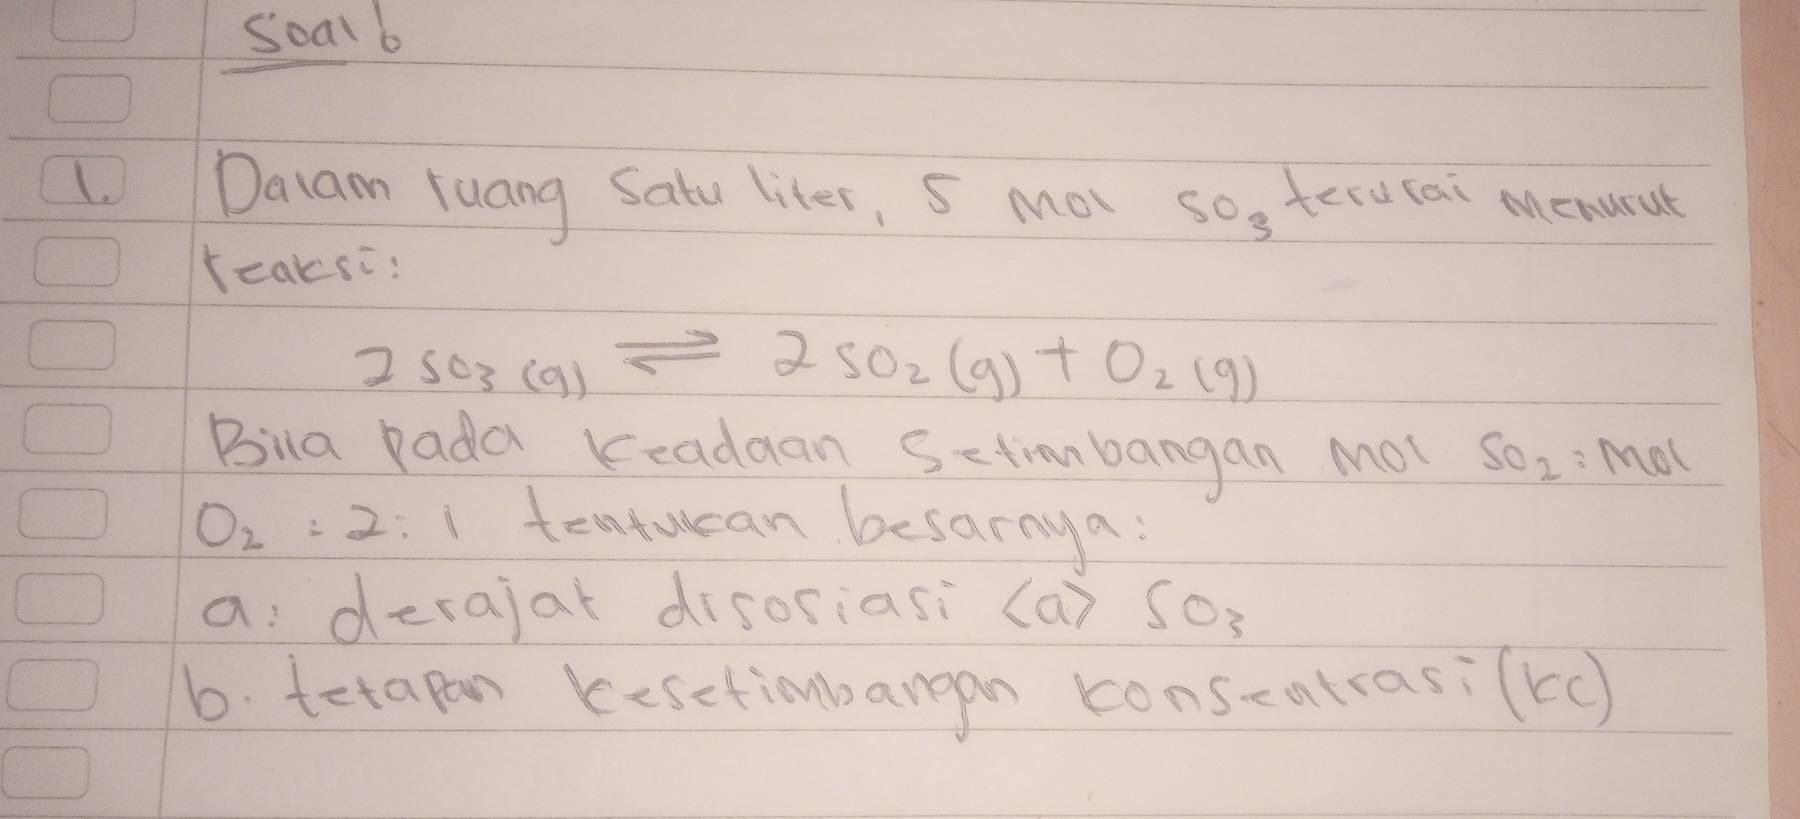 Soal b
1. Dalam ruang satu liter, 5 mol SO₃ terurai menurut
reaksi:
2 SO₃ (g) ⇌ 2 SO₂ (g) + O₂ (g)
Bila pada keadaan setimbangan mol SO₂ : mol
O₂ : 2 : 1 tentukan besarnya:
a. derajat disosiasi <a> SO₃
b. tetapan kesetimbangan konsentrasi (kc)